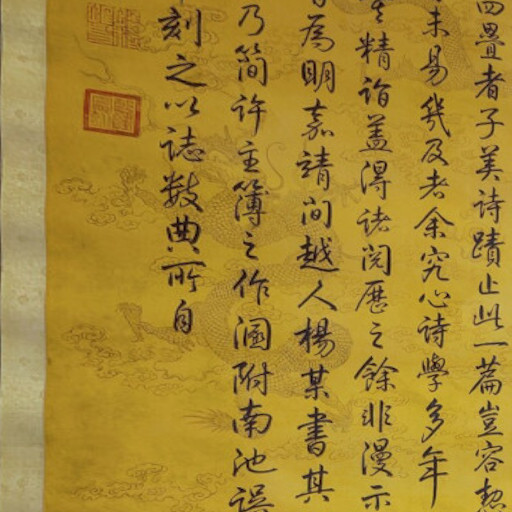 四疊者子美詩蹟止此一篇豈容
未易幾及者余究心詩學多年
精詣蓋得諸閱歷之餘非漫示
為明嘉靖間越人楊某書其
乃簡許主簿之作溷附南池誤
刻之以誌數典所自